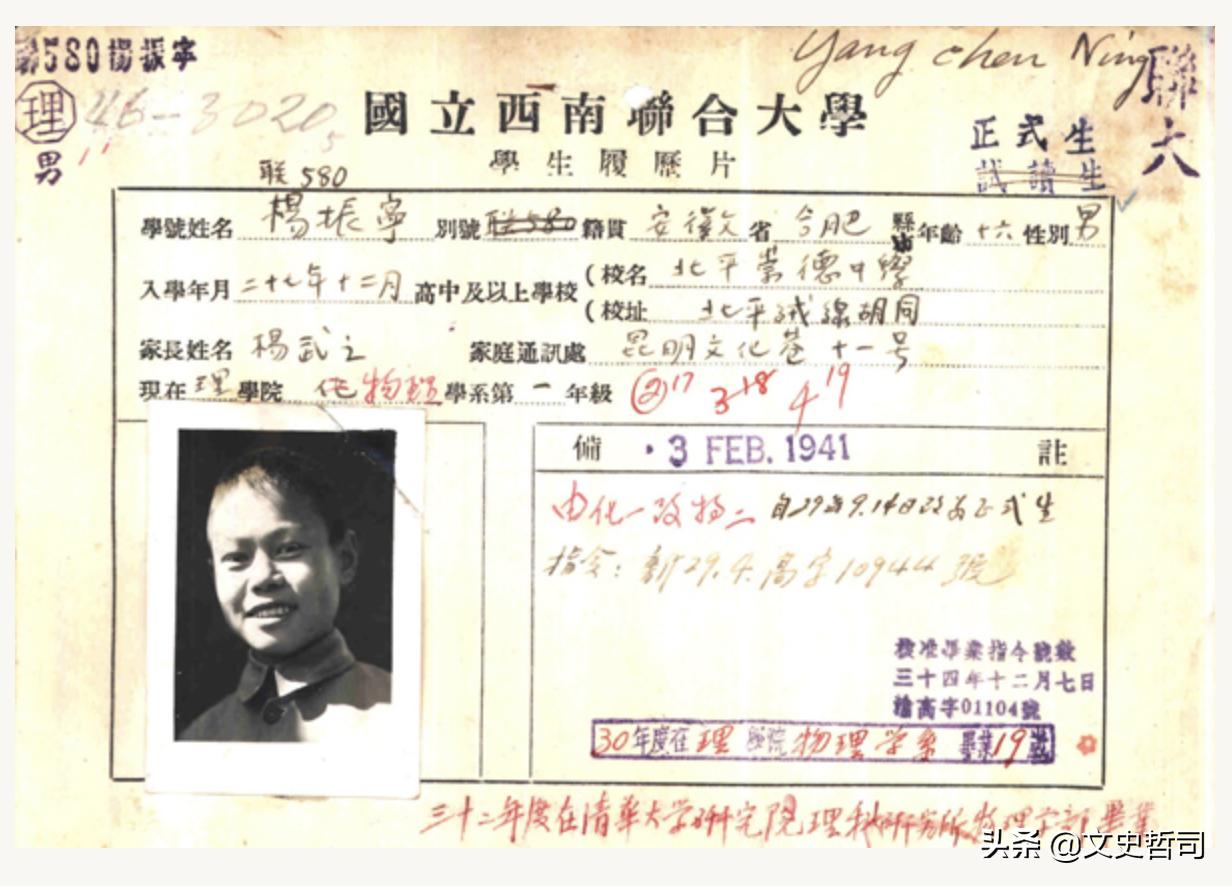 第580楊振宁
Yang Chen Ning
聯六
理 46-3020
男
國立西南聯合大學
學生履歷片
正式生
試讀生
联580
學號姓名 楊振寧 別號 联580 籍貫 安徽 省 合肥 縣市 年齡 十六 性別 男
入學年月 二十七年十二月 高中及以上學校 (校名 北平崇德中學
(校址 北平絨線胡同
家長姓名 楊武之 家庭通訊處 昆明文化巷十一号
現在 理 學院 化 物理 學系第 一 年級 ②17 3 18 4 19
備 3 FEB. 1941 註
由化一改物二 自29年9.14日改为正式生
指令:新29.4.高字10944號
核准畢業指令號數
三十四年十二月七日
渝高字01104號
30年度在理學院物理学系畢業19歲
三十二年度在清華大学研究院理科研究所物理学部畢業
头条 @文史哲司